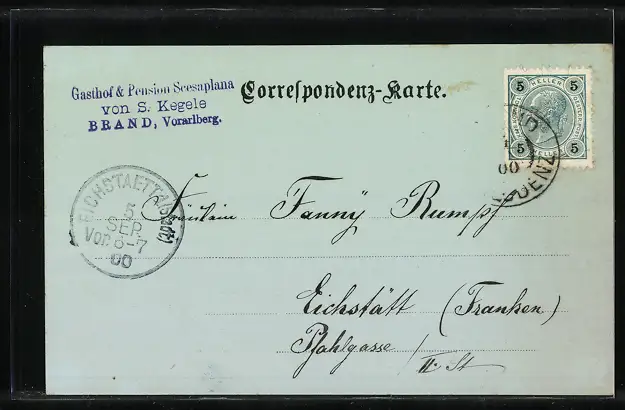 Gasthof & Pension Scesaplana
von S. Kegele
BRAND, Vorarlberg.
Correspondenz-Karte.
5 HELLER 5
5 HELLER 5
00
EICHSTAETT
5
SEP.
Vor. 6-7
00
Fräulein Fanny Rumpf
Eichstätt (Franken)
Pfahlgasse / II. St